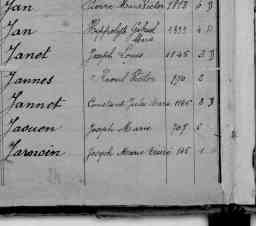 Jan Pierre Marie Victor 1888 6 D
Jan Hippolyte Gabriel
Marie 1333 4
Janot Joseph Louis 1845 2 D
Jannes Raoul Victor 870 2
Jannot Constant Jules Marie 1165 3 D
Jaouen Joseph Marie 707 5
Jarnoin Joseph Marie 145 1